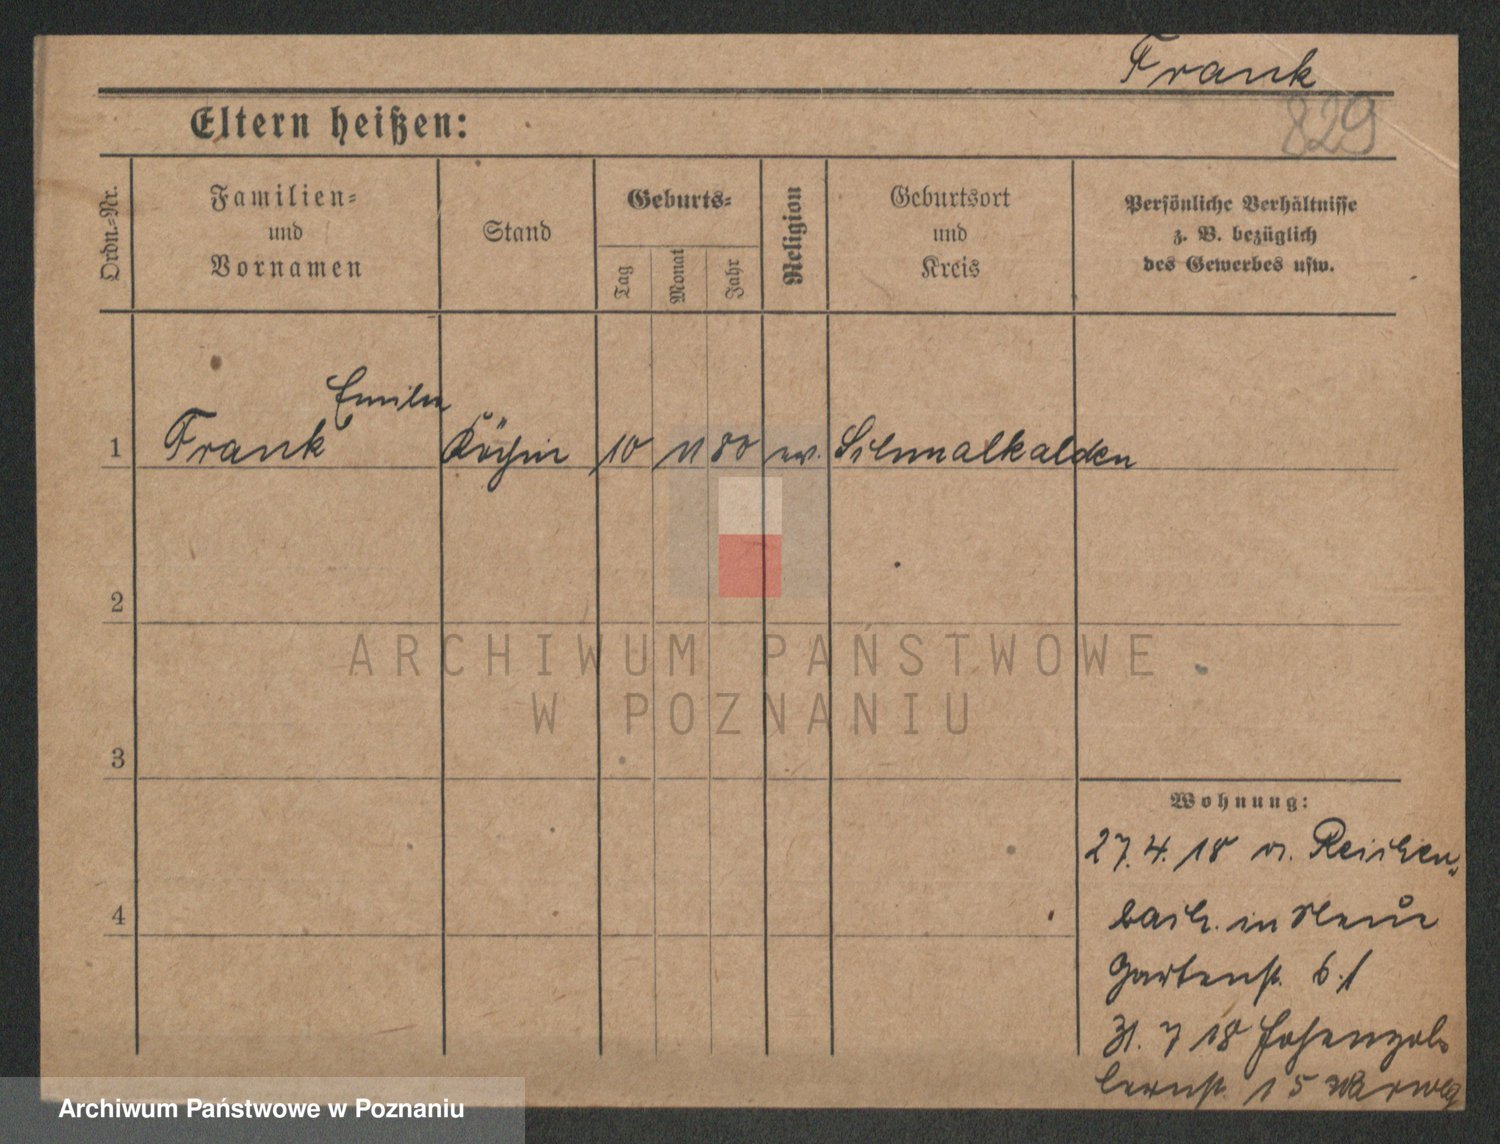 Frank
829
Eltern heißen:
Ordn.-Nr.
Familien-
und
Vornamen
Stand
Geburts-
Tag
Monat
Jahr
Religion
Geburtsort
und
Kreis
Persönliche Verhältnisse
z. B. bezüglich
des Gewerbes usw.
Emilie
1 Frank Köchin 10 11 80 ev. Schmalkalden
2
3
4
ARCHIWUM PAŃSTWOWE
W POZNANIU
Wohnung:
27.4.18 v. Reichen
bach. in
Gartenst. 6.1
31. 7 18 Hohenzol
lernst. 15
Archiwum Państwowe w Poznaniu